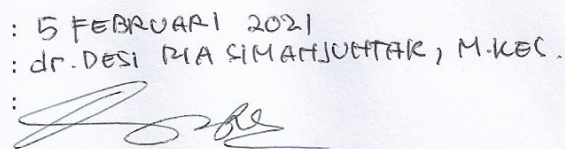 : 5 FEBRUARI 2021
: dr. DESI RIA SIMANJUNTAK, M.KES.
: